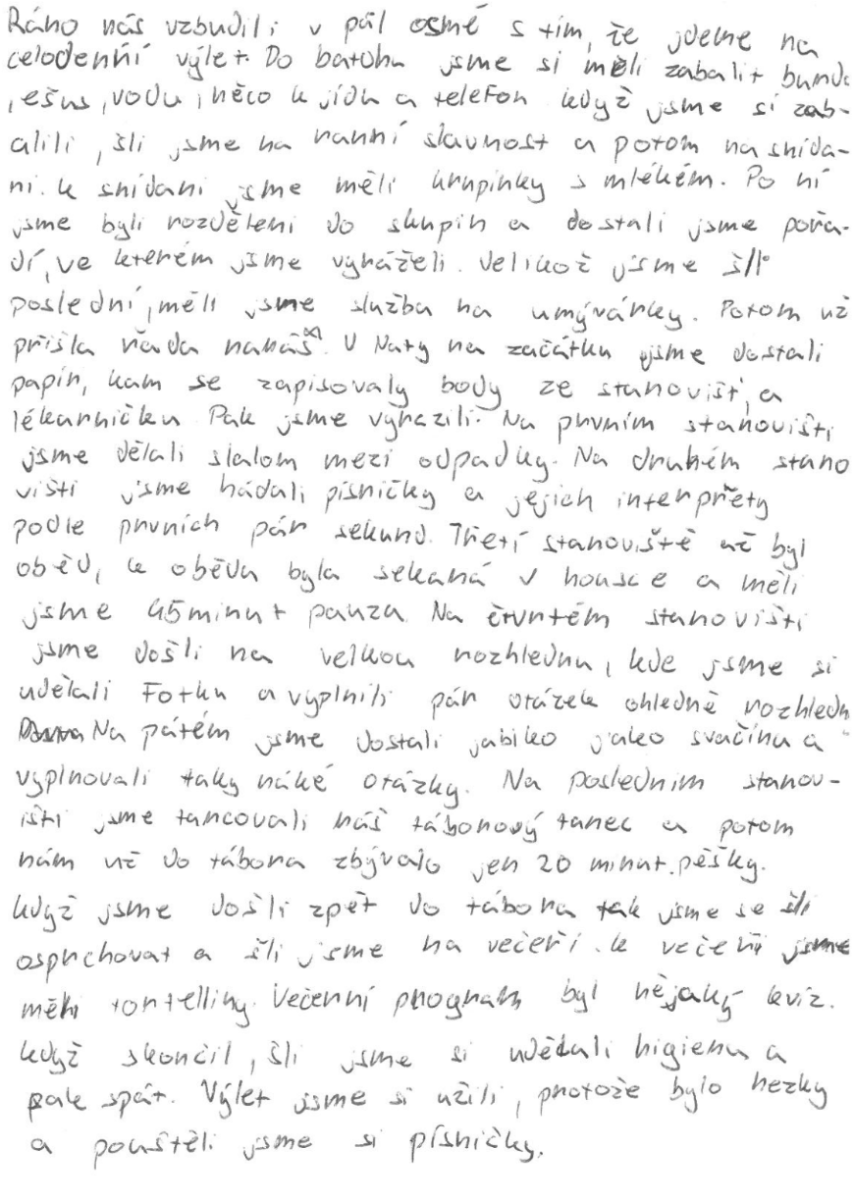 Ráno nás vzbudili v půl osmé s tím, že jdeme na
celodenní výlet. Do batohu jsme si měli zabalit bundu
, ešus, vodu, něco k jídlu a telefon když jsme si zab-
alili, šli jsme na ranní slavnost a potom na snída-
ni. k snídani jsme měli krupinky s mlékem. Po ní
jsme byli rozděleni do skupin a dostali jsme pořa-
dí, ve kterém jsme vyráželi. Jelikož jsme šli
poslední, měli jsme službu na umývárky. Potom už
přišla řada na nás. U Naty na začátku jsme dostali
papír, kam se zapisovaly body ze stanovišť, a
lékarničku Pak jsme vyrazili. Na prvním stanovišti
jsme dělali slalom mezi odpadky. Na druhém stano
višti jsme hádali písničky a jejich interprety
podle prvních pár sekund. Třetí stanoviště už byl
oběd, k obědu byla sekaná v housce a měli
jsme 45 minut pauzu Na čtvrtém stanovišti
jsme došli na velkou rozhlednu, kde jsme si
udělali fotku a vyplnili pár otázek ohledně rozhledn
Na pátém jsme dostali jablko jako svačinu a
vyplnovali taky náké otázky. Na posledním stanov-
išti jsme tancovali náš táborový tanec a potom
nám už do tábora zbývalo jen 20 minut pěšky.
když jsme došli zpět do tábora tak jsme se šli
osprchovat a šli jsme na večeři. k večeři jsme
měli tortelliny. Večerní program byl nějaký kvíz.
když skončil, šli jsme si udělali higienu a
pak spát. Výlet jsme si užili, protože bylo hezky
a pouštěli jsme si písničky.